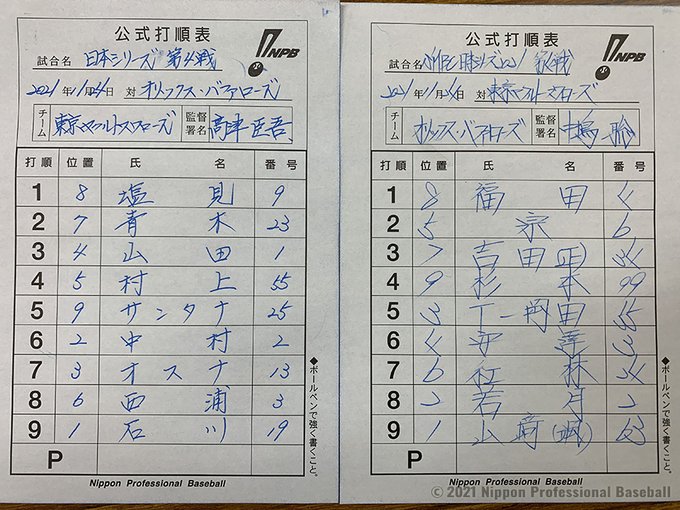 公式打順表
NPB
試合名 日本シリーズ 第4戦
2021年11月24日 対 オリックス・バファローズ
チーム 東京ヤクルトスワローズ 監督署名 高津臣吾
打順 位置 氏 名 番号
1 8 塩見 9
2 7 青木 23
3 4 山田 1
4 5 村上 55
5 9 サンタナ 25
6 2 中村 2
7 3 オスナ 13
8 6 西浦 3
9 1 石川 19
P
◆ボールペンで強く書くこと。
Nippon Professional Baseball
公式打順表
NPB
試合名
2021年11月24日 対 東京ヤクルトスワローズ
チーム オリックス・バファローズ 監督署名 中嶋 聡
打順 位置 氏 名 番号
1 8 福田 4
2 5 宗 6
3 7 吉田(正) 34
4 9 杉本 99
5 3 T-岡田 55
6 4 安達 3
7 6 紅林 24
8 2 若月 2
9 1 山﨑(颯) 63
P
◆ボールペンで強く書くこと。
Nippon Professional Baseball
© 2021 Nippon Professional Baseball